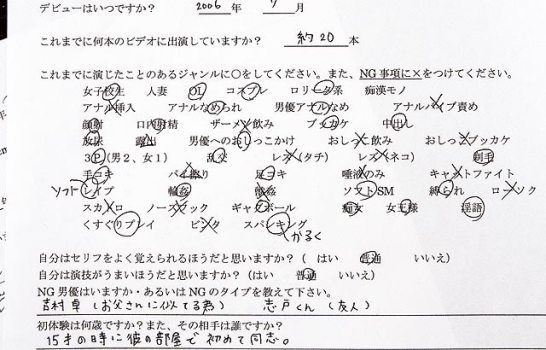 デビューはいつですか？ 2006 年 7 月
これまでに何本のビデオに出演していますか？ 約20 本
これまでに演じたことのあるジャンルに○をしてください。また、NG事項に×をつけてください。
女子校生 人妻 OL コスプレ ロリータ系 痴漢モノ
アナル挿入 アナルなめられ 男優アナルなめ アナルバイブ責め
顔射 口内射精 ザーメン飲み ブッカケ 中出し
放尿 露出 男優へのおしっこかけ おしっこ飲み おしっこブッカケ
3P（男2、女1） 乱交 レズ（タチ） レズ（ネコ）
手コキ パイ擦り 足コキ 唾液のみ キャットファイト
ソフト レイプ 輪姦 ソフトSM 縛られ ローソク
スカトロ ノーズフック ギャグボール 痴女 女王様 淫語
くすぐりプレイ ビンタ スパンキング かるく
自分はセリフをよく覚えられるほうだと思いますか？（ はい 普通 いいえ）
自分は演技がうまいほうだと思いますか？（はい 普通 いいえ）
NG男優はいますか・あるいはNGのタイプを教えて下さい。
吉村卓（お父さんに似てる為） 志戸くん（友人）